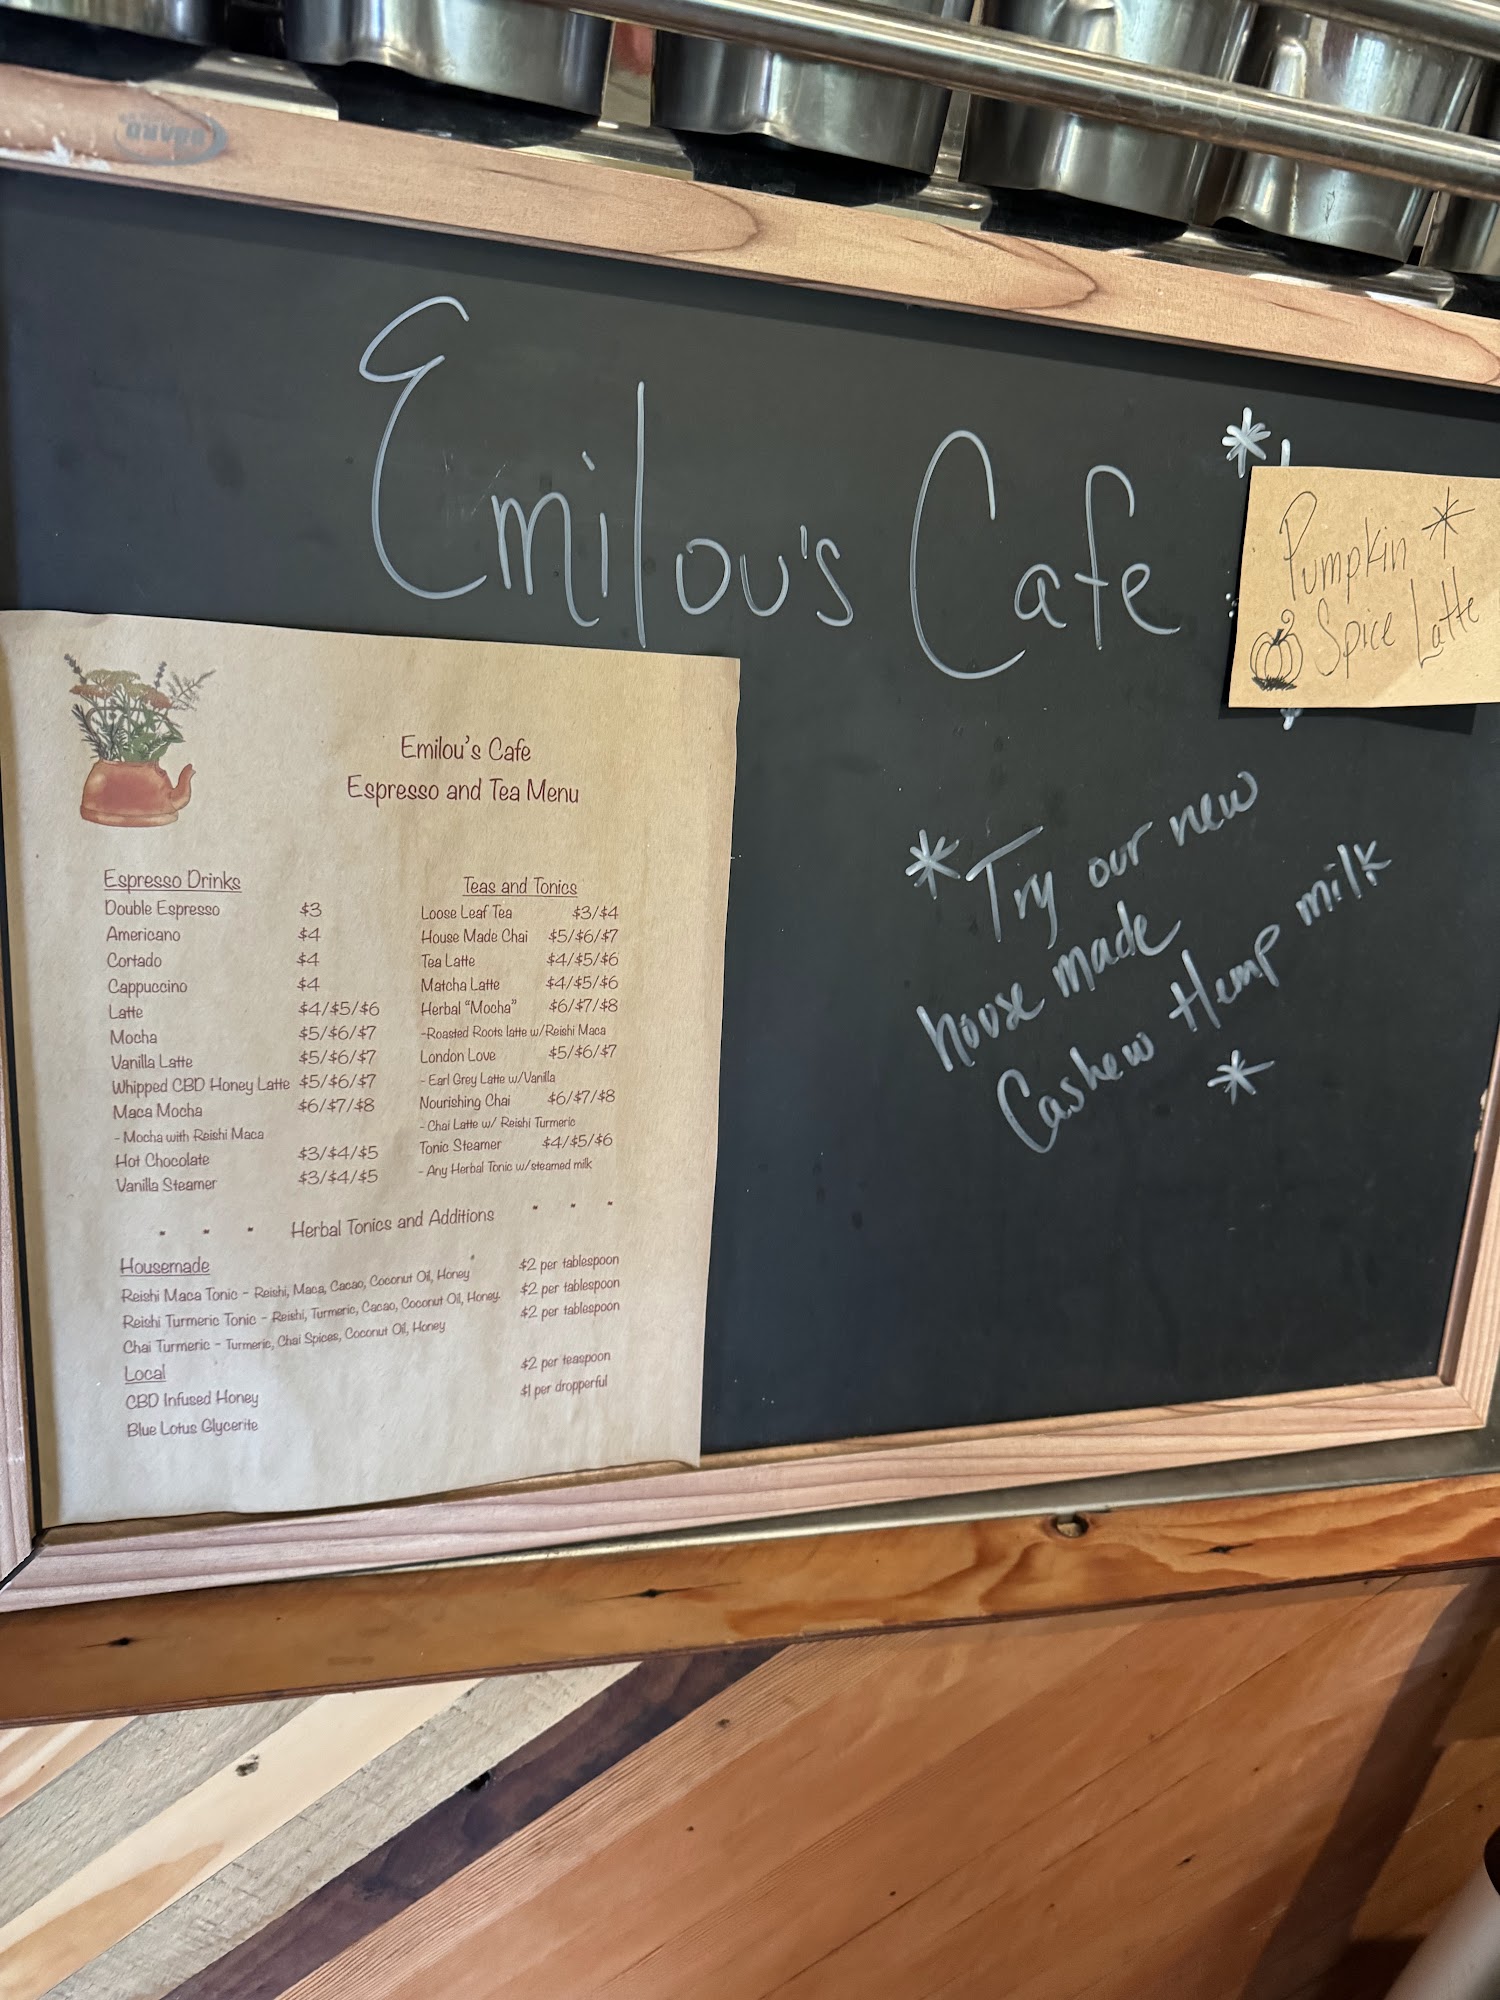 Emilou's Cafe
Pumpkin
Spice Latte
*Try our new
house made
Cashew Hemp milk
*
Emilou's Cafe
Espresso and Tea Menu
Espresso Drinks
Double Espresso $3
Americano $4
Cortado $4
Cappuccino $4
Latte $4/$5/$6
Mocha $5/$6/$7
Vanilla Latte $5/$6/$7
Whipped CBD Honey Latte $5/$6/$7
Maca Mocha $6/$7/$8
- Mocha with Reishi Maca
Hot Chocolate $3/$4/$5
Vanilla Steamer $3/$4/$5
Teas and Tonics
Loose Leaf Tea $3/$4
House Made Chai $5/$6/$7
Tea Latte $4/$5/$6
Matcha Latte $4/$5/$6
Herbal "Mocha" $6/$7/$8
-Roasted Roots latte w/Reishi Maca
London Love $5/$6/$7
- Earl Grey Latte w/Vanilla
Nourishing Chai $6/$7/$8
- Chai Latte w/ Reishi Turmeric
Tonic Steamer $4/$5/$6
- Any Herbal Tonic w/steamed milk
Herbal Tonics and Additions
Housemade
Reishi Maca Tonic - Reishi, Maca, Cacao, Coconut Oil, Honey $2 per tablespoon
Reishi Turmeric Tonic - Reishi, Turmeric, Cacao, Coconut Oil, Honey. $2 per tablespoon
Chai Turmeric - Turmeric, Chai Spices, Coconut Oil, Honey $2 per tablespoon
Local
CBD Infused Honey $2 per teaspoon
Blue Lotus Glycerite $1 per dropperful